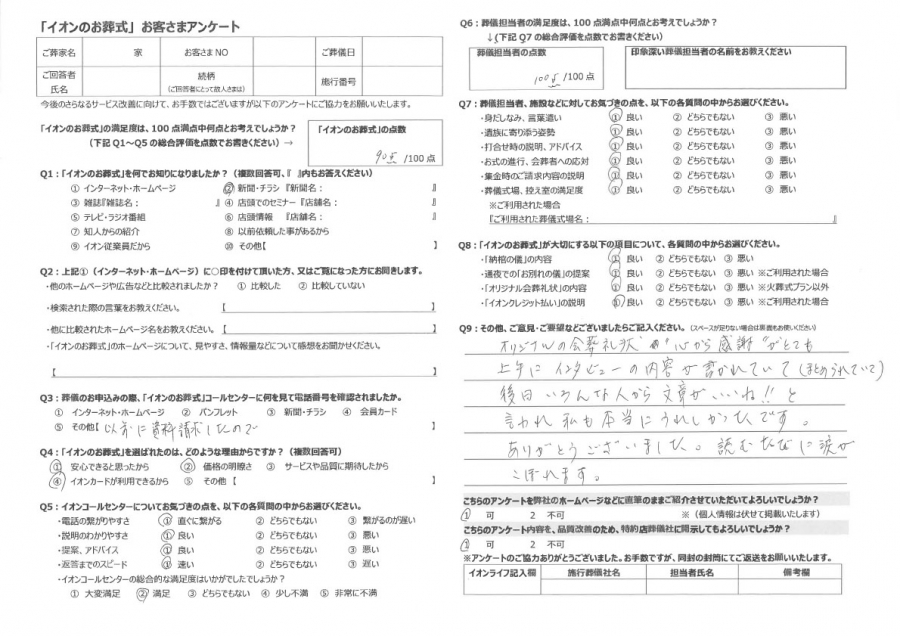 「イオンのお葬式」お客さまアンケート
ご葬家名 家 お客さまNO ご葬儀日
ご回答者氏名 続柄(ご回答者にとって故人さまは) 施行番号
今後のさらなるサービス改善に向けて、お手数ではございますが以下のアンケートにご協力をお願いいたします。
「イオンのお葬式」の満足度は、100点満点中何点とお考えでしょうか?
(下記Q1~Q5の総合評価を点数でお書きください)→
「イオンのお葬式」の点数
90点 /100点
Q1:「イオンのお葬式」を何でお知りになりましたか?(複数回答可、『 』内もお答えください)
① インターネット・ホームページ ② 新聞・チラシ『新聞名: 』
③ 雑誌『雑誌名: 』 ④ 店頭でのセミナー『店舗名: 』
⑤ テレビ・ラジオ番組 ⑥ 店頭情報 『店舗名: 』
⑦ 知人からの紹介 ⑧ 以前依頼した事があるから
⑨ イオン従業員だから ⑩ その他【 】
Q2:上記①(インターネット・ホームページ)に○印を付けて頂いた方、又はご覧になった方にお聞きします。
・他のホームページや広告などと比較されましたか? ① 比較した ② 比較していない
・検索された際の言葉をお教えください。 【 】
・他に比較されたホームページ名をお教えください。【 】
・「イオンのお葬式」のホームページについて、見やすさ、情報量などについて感想をお聞かせください。
【 】
Q3:葬儀のお申込みの際、「イオンのお葬式」コールセンターに何を見て電話番号を確認されましたか。
① インターネット・ホームページ ② パンフレット ③ 新聞・チラシ ④ 会員カード
⑤ その他【以前に資料請求したので 】
Q4:「イオンのお葬式」を選ばれたのは、どのような理由からですか?(複数回答可)
① 安心できると思ったから ② 価格の明瞭さ ③ サービスや品質に期待したから
④ イオンカードが利用できるから ⑤ その他【 】
Q5:イオンコールセンターについてお気づきの点を、以下の各質問の中からお選びください。
・電話の繋がりやすさ ① 直ぐに繋がる ② どちらでもない ③ 繋がるのが遅い
・説明のわかりやすさ ① 良い ② どちらでもない ③ 悪い
・提案、アドバイス ① 良い ② どちらでもない ③ 悪い
・返答までのスピード ① 速い ② どちらでもない ③ 遅い
・イオンコールセンターの総合的な満足度はいかがでしたでしょうか?
① 大変満足 ② 満足 ③ どちらでもない ④ 少し不満 ⑤ 非常に不満
Q6:葬儀担当者の満足度は、100点満点中何点とお考えでしょうか?
↓(下記Q7の総合評価を点数でお書きください)
葬儀担当者の点数 印象深い葬儀担当者の名前をお教えください
100点 /100点
Q7:葬儀担当者、施設などに対してお気づきの点を、以下の各質問の中からお選びください。
・身だしなみ、言葉遣い ① 良い ② どちらでもない ③ 悪い
・遺族に寄り添う姿勢 ① 良い ② どちらでもない ③ 悪い
・打合せ時の説明、アドバイス ① 良い ② どちらでもない ③ 悪い
・お式の進行、会葬者への応対 ① 良い ② どちらでもない ③ 悪い
・集金時のご請求内容の説明 ① 良い ② どちらでもない ③ 悪い
・葬儀式場、控え室の満足度 ① 良い ② どちらでもない ③ 悪い
※ご利用された場合
『ご利用された葬儀式場名: 』
Q8:「イオンのお葬式」が大切にする以下の項目について、各質問の中からお選びください。
・「納棺の儀」の内容 ① 良い ② どちらでもない ③ 悪い
・通夜での「お別れの儀」の提案 ① 良い ② どちらでもない ③ 悪い ※ご利用された場合
・「オリジナル会葬礼状」の内容 ① 良い ② どちらでもない ③ 悪い ※火葬式プラン以外
・「イオンクレジット払い」の説明 ① 良い ② どちらでもない ③ 悪い ※ご利用された場合
Q9:その他、ご意見・ご要望などございましたらご記入ください。(スペースが足りない場合は裏面もお使いください)
オリジナルの会葬礼状の"心から感謝"がとても
上手にインタビューの内容が書かれていて(まとめられていて)
後日いろんな人から文章がいいね!!と
言われ私も本当にうれしかったです。
ありがとうございました。読むたびに涙が
こぼれます。
こちらのアンケートを弊社のホームページなどに直筆のままご紹介させていただいてよろしいでしょうか?
1 可 2 不可 ※(個人情報は伏せて掲載いたします)
こちらのアンケート内容を、品質改善のため、特約店葬儀社に開示してもよろしいでしょうか?
1 可 2 不可
※アンケートのご協力ありがとうございました。お手数ですが、同封の封筒にてご返送をお願いいたします。
イオンライフ記入欄 施行葬儀社名 担当者氏名 備考欄